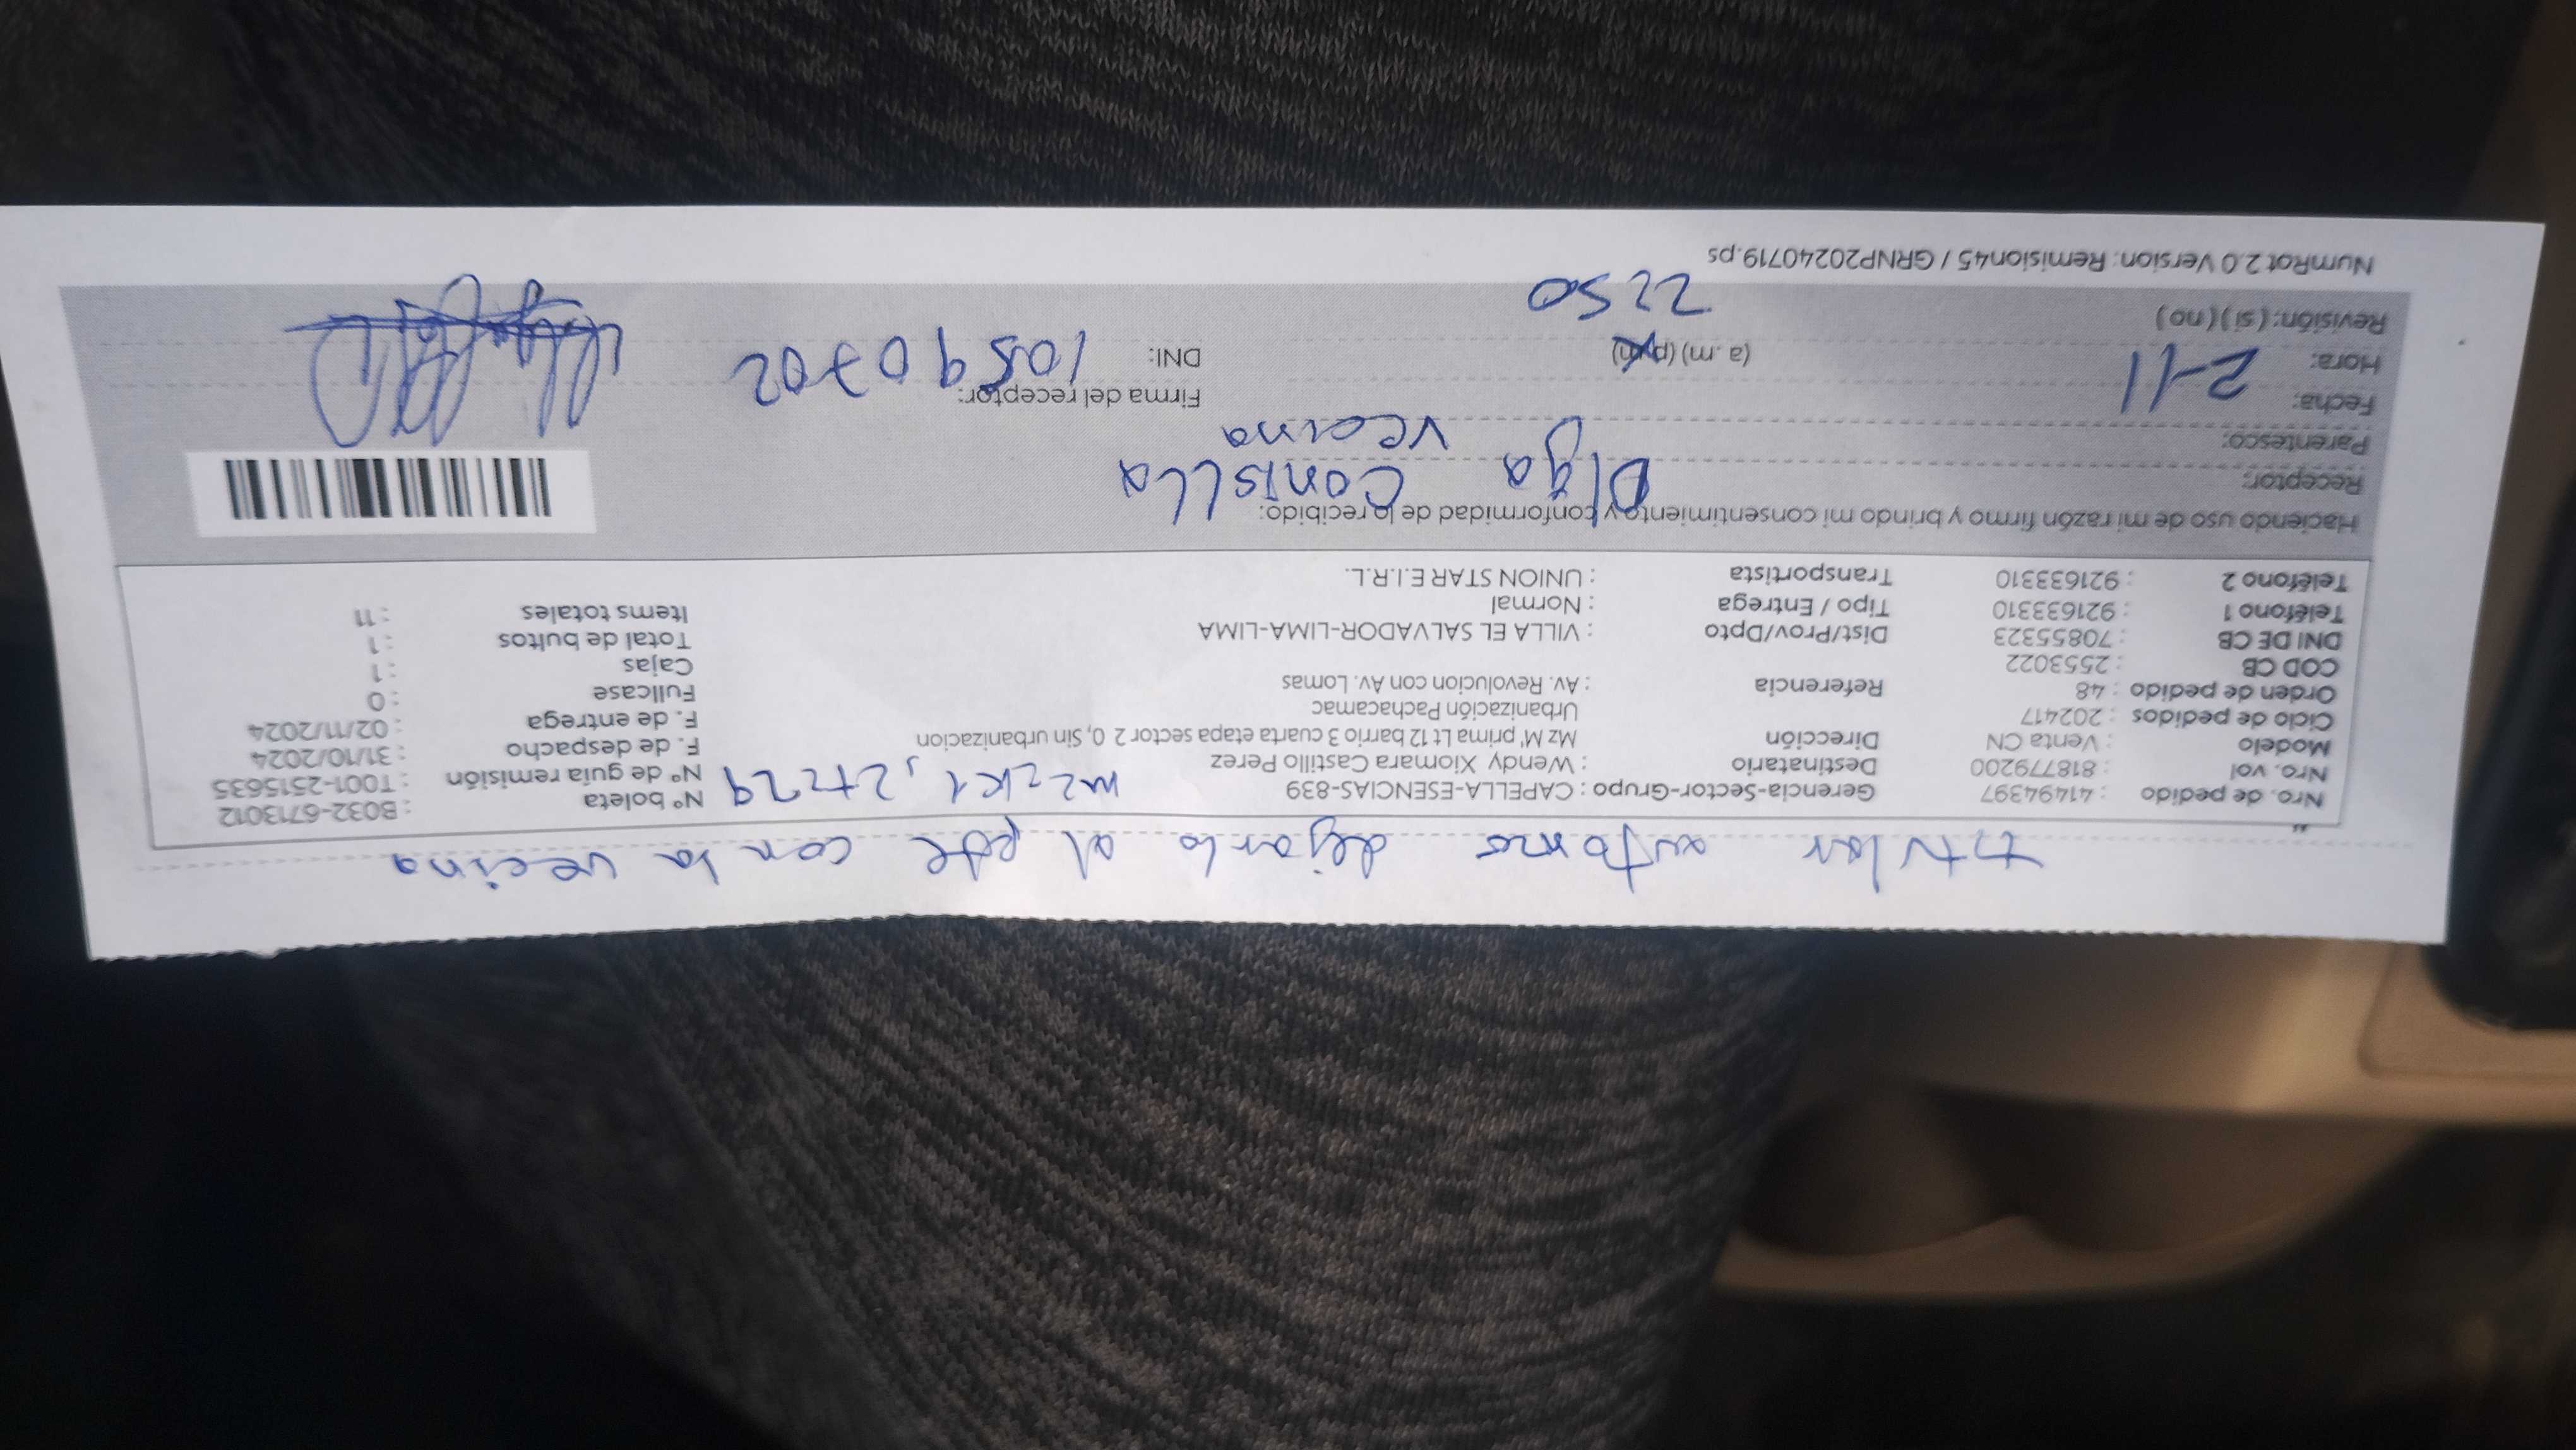 titular autorizo dejarlo al pqte con la vecina
Nro. de pedido : 41494397 Gerencia-Sector-Grupo : CAPELLA-ESENCIAS-839 Nº boleta : B032-6713012
Nro. vol : 818779200 Destinatario : Wendy Xiomara Castillo Perez mz2K1, Ltz29 Nº de guía remisión : T001-2515635
Modelo : Venta CN Dirección Mz M' prima Lt 12 barrio 3 cuarta etapa sector 2 0, Sin urbanizacion F. de despacho : 31/10/2024
Ciclo de pedidos : 202417 Urbanización Pachacamac F. de entrega : 02/11/2024
Orden de pedido : 48 Referencia : Av. Revolucion con Av. Lomas Fullcase : 0
COD CB : 2553022 Cajas : 1
DNI DE CB : 70855323 Dist/Prov/Dpto : VILLA EL SALVADOR-LIMA-LIMA Total de bultos : 1
Teléfono 1 : 921633310 Tipo / Entrega : Normal Items totales : 11
Teléfono 2 : 921633310 Transportista : UNION STAR E.I.R.L.
Haciendo uso de mi razón firmo y brindo mi consentimiento y conformidad de lo recibido:
Receptor: Olga Conislla
Parentesco: vecina
Fecha: 2-11 Firma del receptor:
Hora: (a. m) (p.m) DNI: 10590702
Revisión: (si) (no) 2250
NumRot 2.0 Version: Remision45 / GRNP20240719.ps